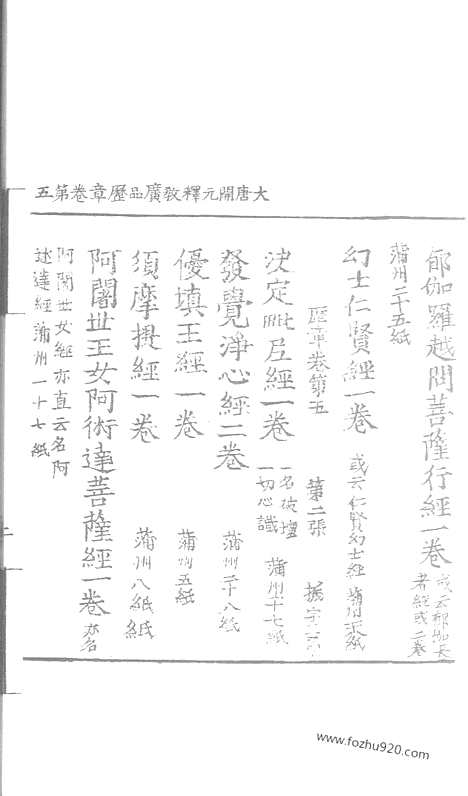 大唐開元釋教廣品歷章卷第五
郁伽羅越問菩薩行經一卷 或云郁伽長者經或二卷
蒲州二十五紙
幻士仁賢經一卷 或云仁賢幻士經 蒲州 紙
歷章卷第五 第二張
決定毗尼經一卷 一名破壞一切心識 蒲州十七紙
發覺淨心經二卷 蒲州二十八紙
優填王經一卷 蒲州五紙
須摩提經一卷 蒲州八紙紙
阿闍世王女阿術達菩薩經一卷 亦名
阿闍世女經亦直云名阿
述達經蒲州一十七紙
www.fozhu920.com